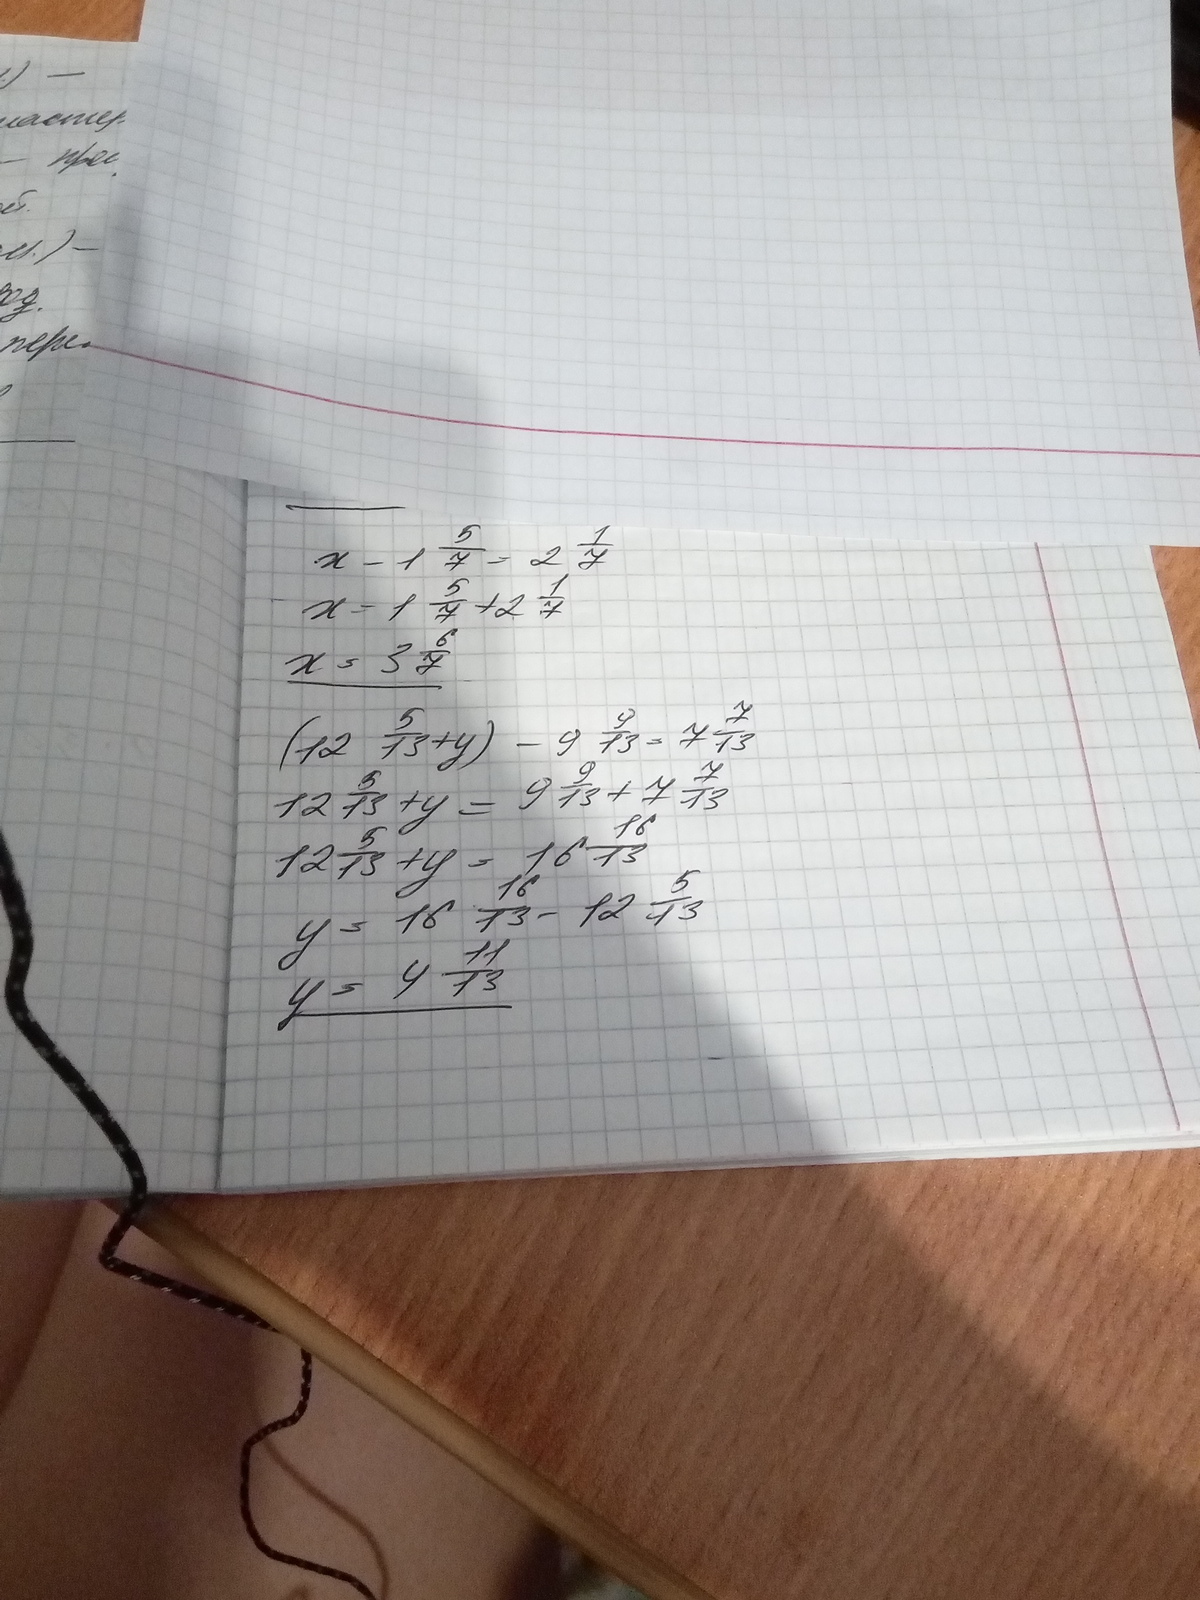 .) —
— прес.
ой.
год.
пере.
x - 1 5/7 = 2 1/7
x = 1 5/7 + 2 1/7
x = 3 6/7
(12 5/13 + y) - 9 9/13 = 7 7/13
12 5/13 + y = 9 9/13 + 7 7/13
12 5/13 + y = 16 16/13
y = 16 16/13 - 12 5/13
y = 4 11/13